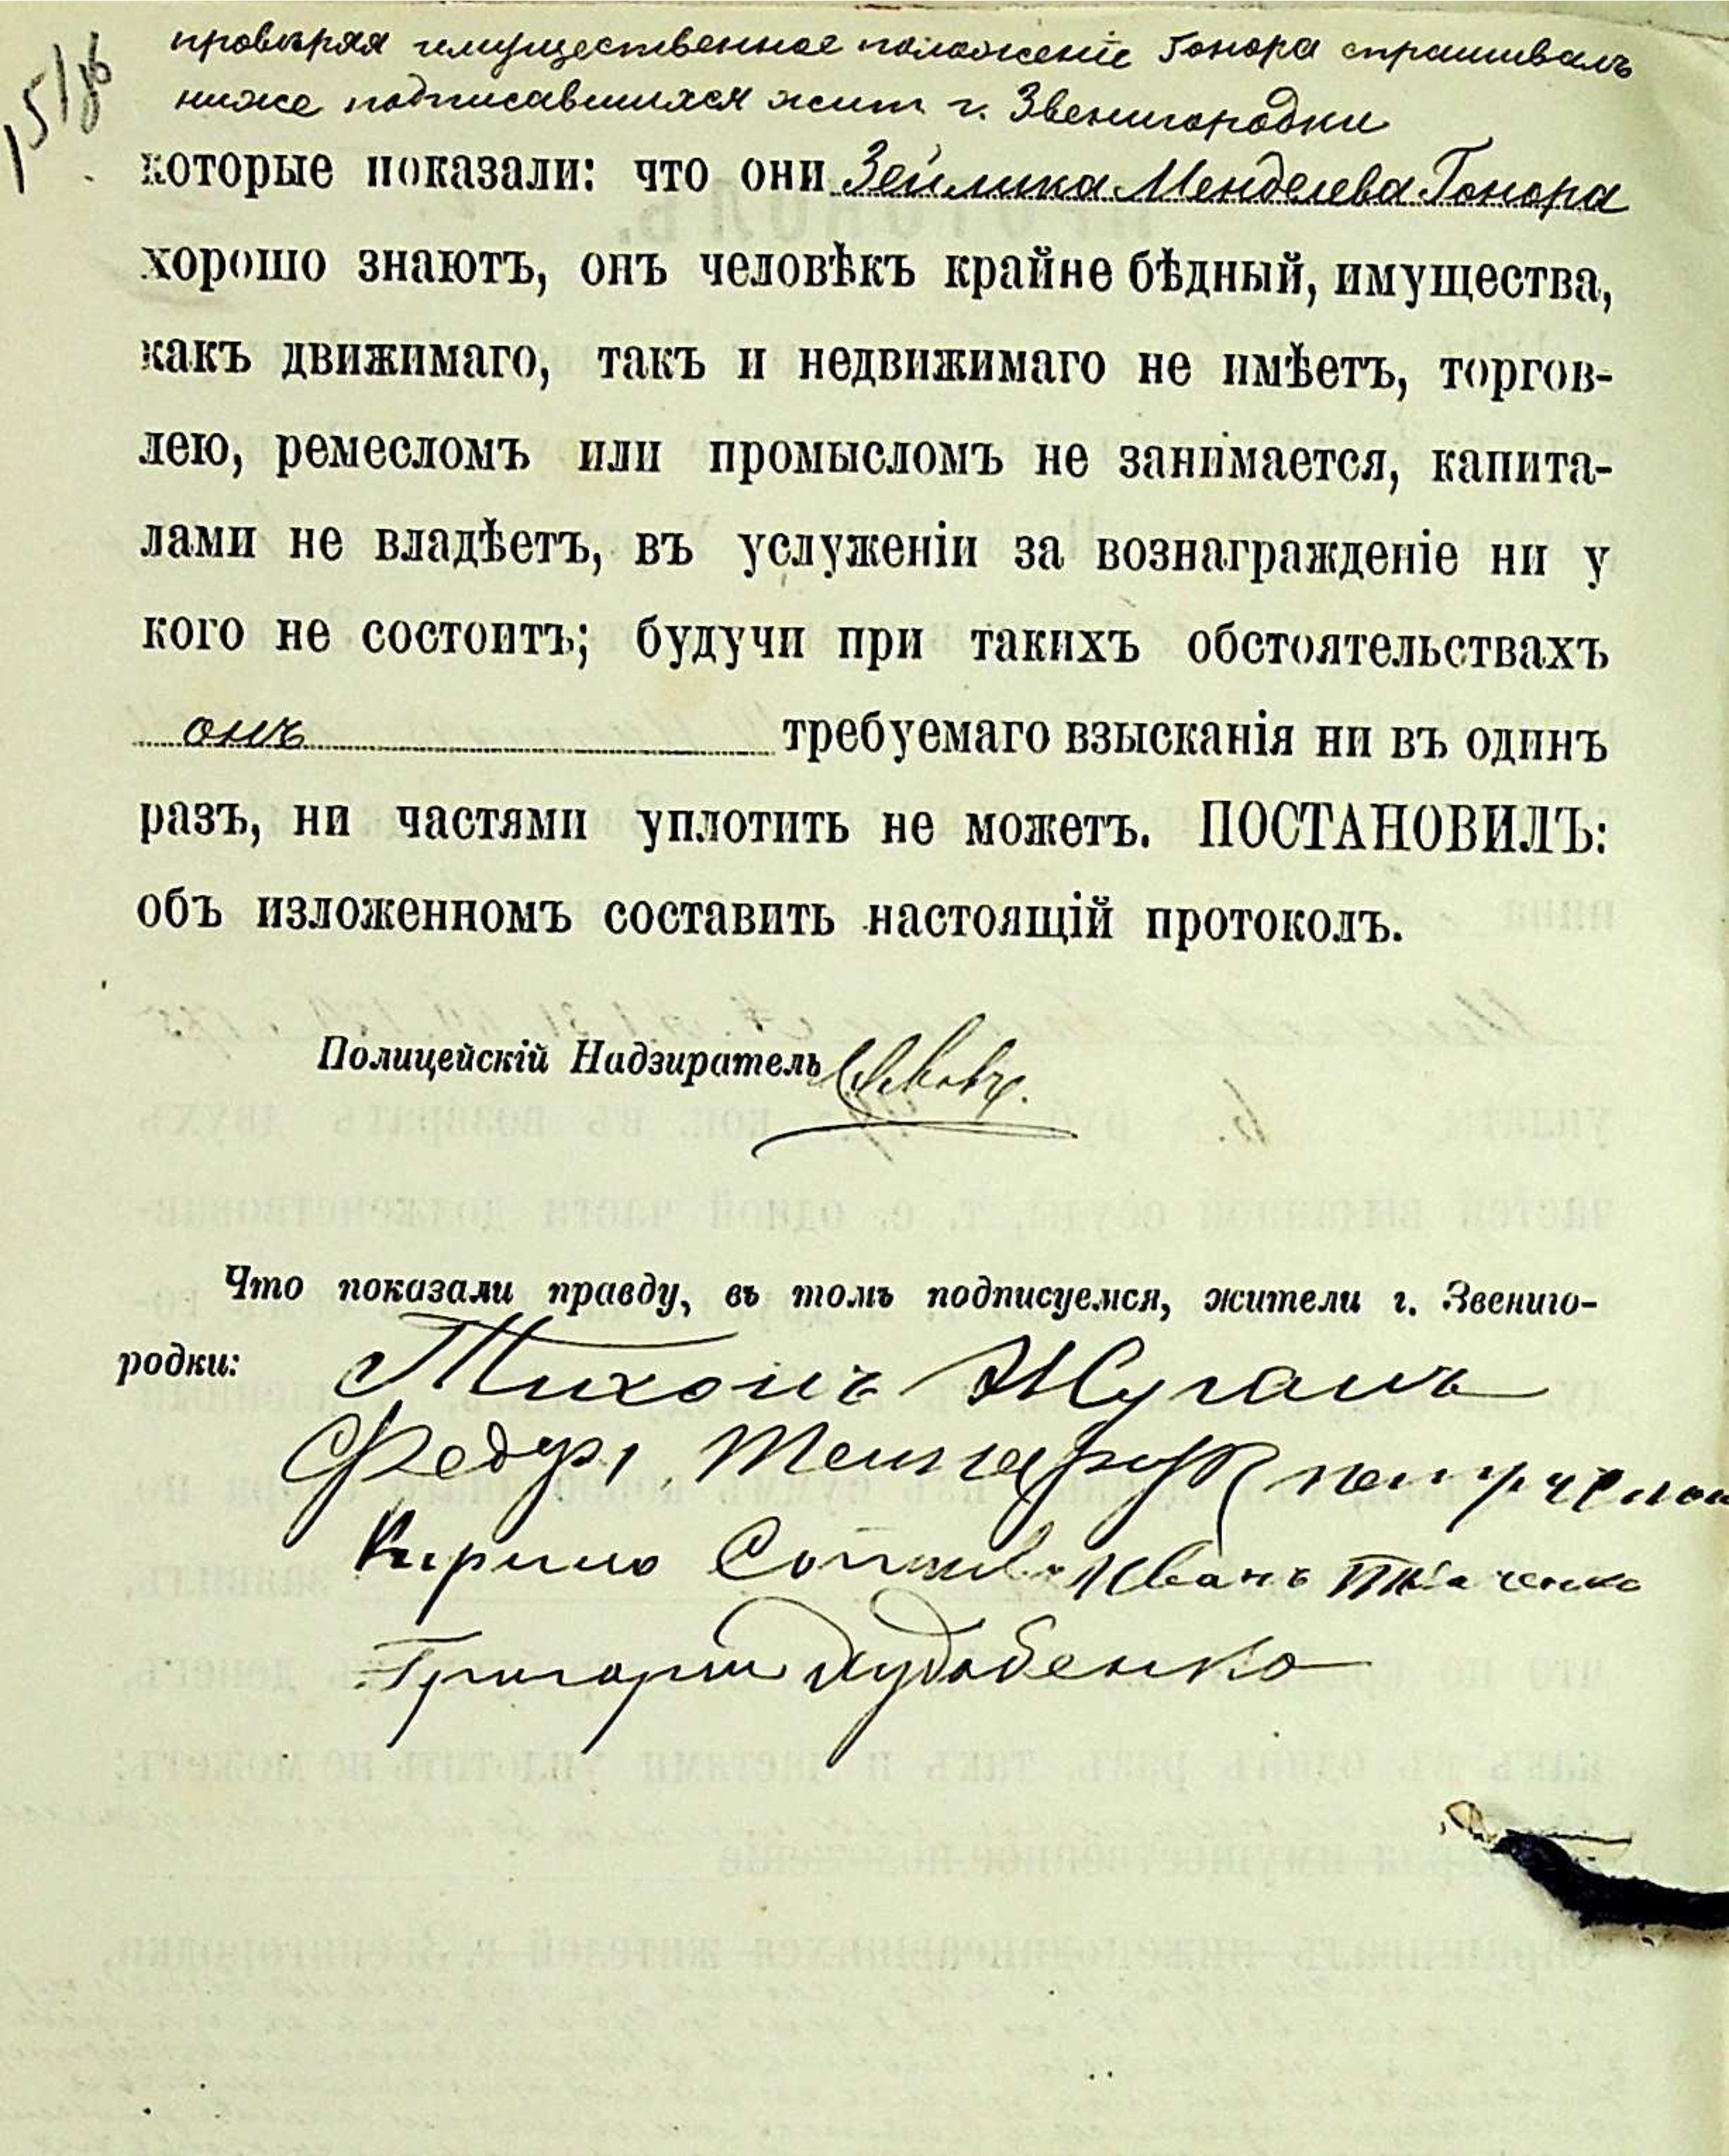 провѣряя имущественное положеніе Гонора спрашивалъ
ниже подписавшихся жит. г. Звенигородки
которые показали: что они Зейлика Менделева Гонора
хорошо знаютъ, онъ человѣкъ крайне бѣдный, имущества,
какъ движимаго, такъ и недвижимаго не имѣетъ, торгов-
лею, ремесломъ или промысломъ не занимается, капита-
лами не владѣетъ, въ услуженіи за вознагражденіе ни у
кого не состоитъ; будучи при такихъ обстоятельствахъ
онъ требуемаго взысканія ни въ одинъ
разъ, ни частями уплотить не можетъ. ПОСТАНОВИЛЪ:
объ изложенномъ составить настоящій протоколъ.
Полицейскій Надзиратель
Что показали правду, въ томъ подписуемся, жители г. Звениго-
родки: Тихонъ Жуганъ
Федиръ
Кирило Иванъ Ткаченко
Григорий Худобенко